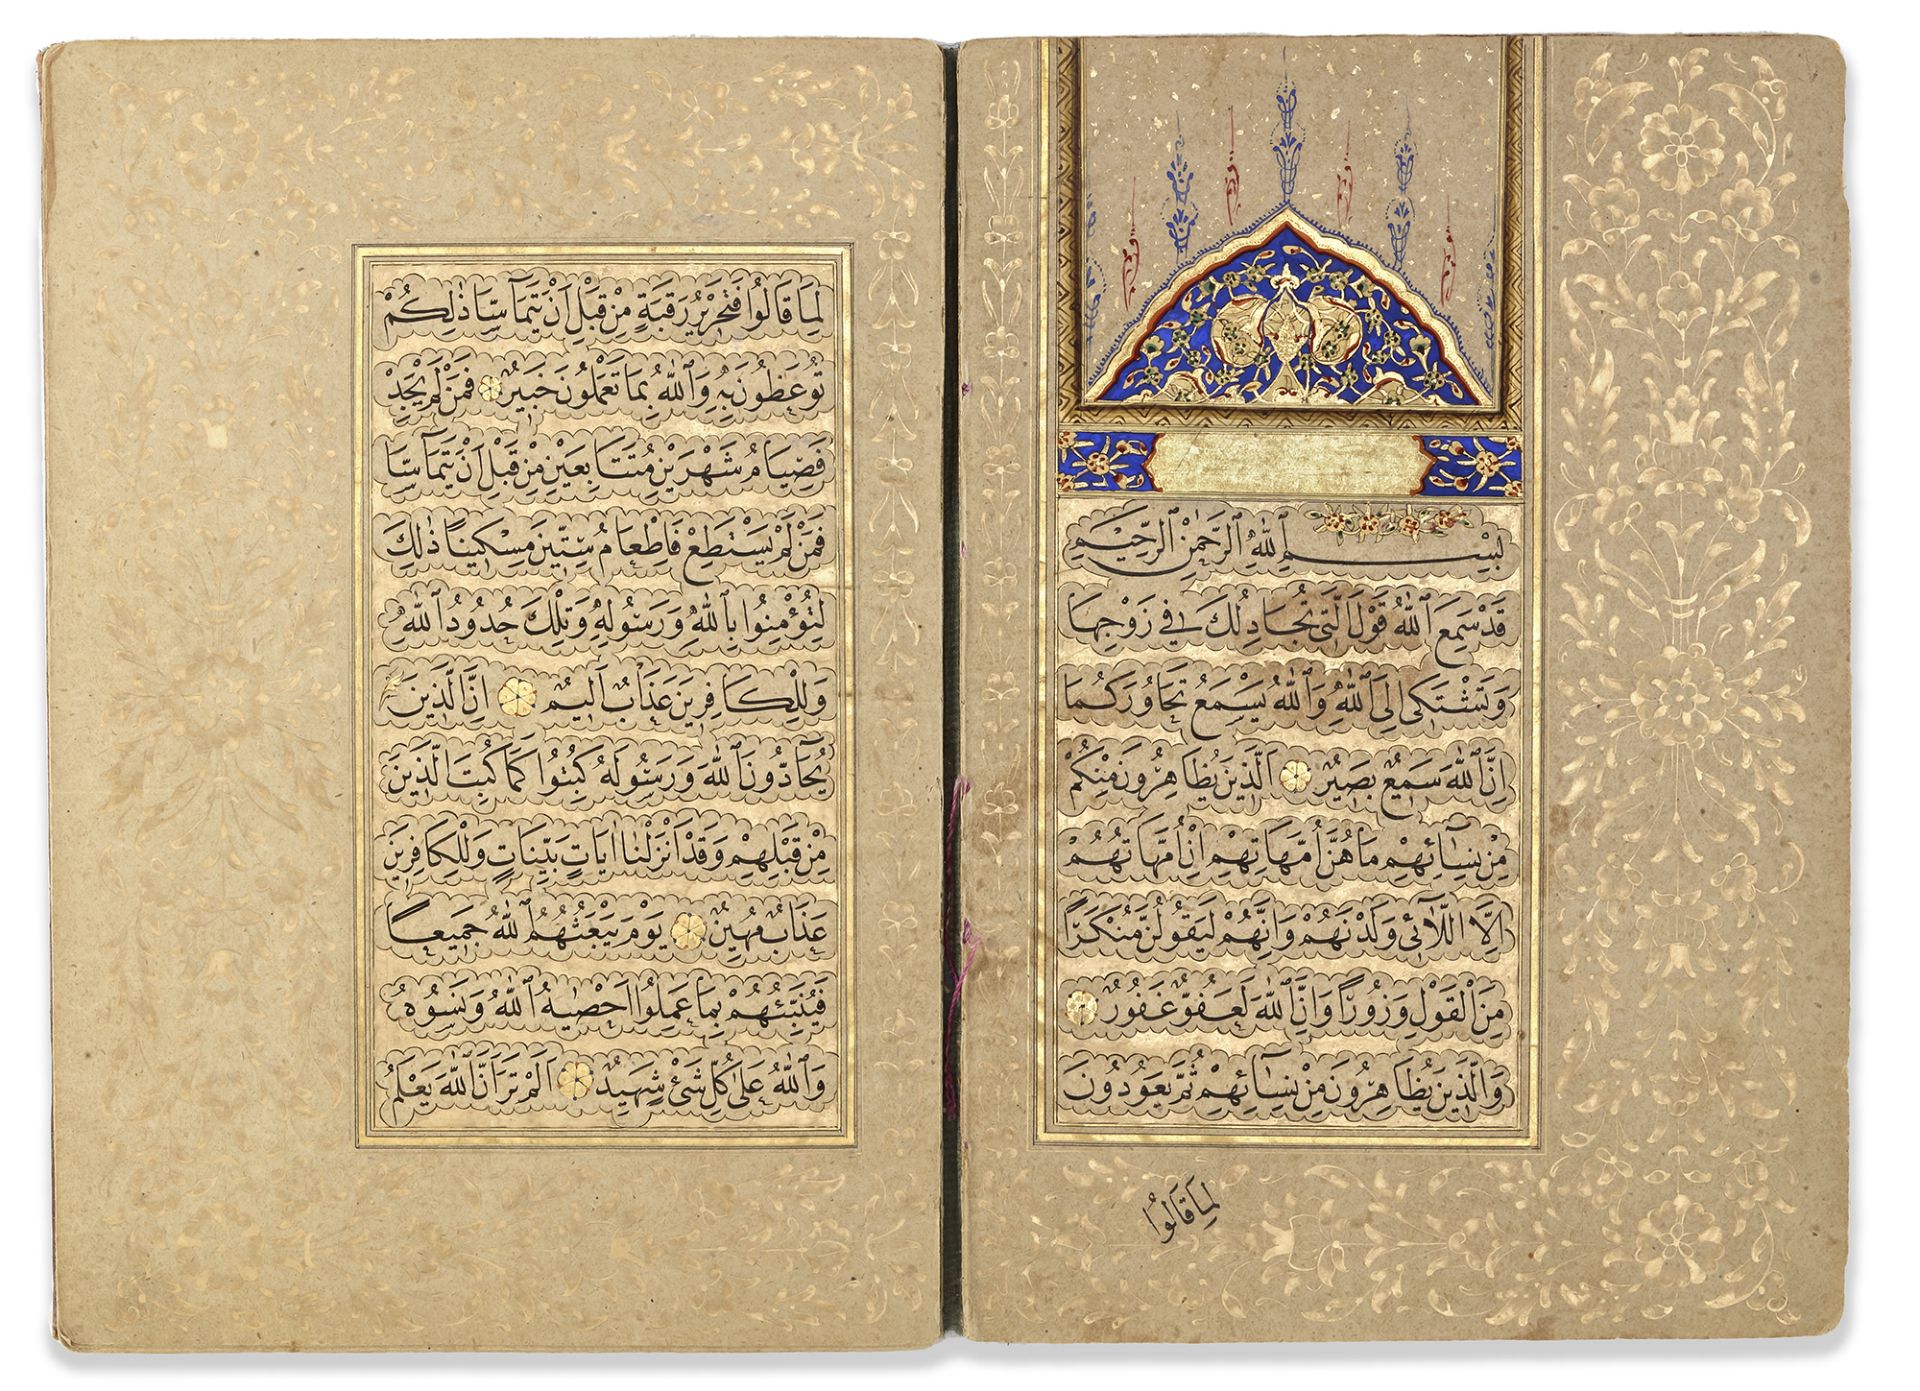 بِسْمِ ٱللّٰهِ ٱلرَّحْمٰنِ ٱلرَّحِيمِ
قَدْ سَمِعَ ٱللّٰهُ قَوْلَ الَّتِي تُجَادِلُكَ فِي زَوْجِهَا
وَتَشْتَكِي اِلَى ٱللّٰهِ وَٱللّٰهُ يَسْمَعُ تَحَاوُرَكُمَا
اِنَّ ٱللّٰهَ سَمِيعٌ بَصِيرٌ اَلَّذِينَ يُظَاهِرُونَ مِنْكُمْ
مِنْ نِسَآئِهِمْ مَا هُنَّ اُمَّهَاتِهِمْ اِنْ اُمَّهَاتُهُمْ
اِلَّا اللَّآئِي وَلَدْنَهُمْ وَاِنَّهُمْ لَيَقُولُنَّ مُنْكَرًا
مِنَ ٱلْقَوْلِ وَزُورًا وَاِنَّ ٱللّٰهَ لَعَفُوٌّ غَفُورٌ
وَالَّذِينَ يُظَاهِرُونَ مِنْ نِسَآئِهِمْ ثُمَّ يَعُودُونَ
لِمَا قَالُوا
لِمَا قَالُوا فَتَحْرِيرُ رَقَبَةٍ مِنْ قَبْلِ اَنْ يَتَمَآسَّا ذٰلِكُمْ
تُوعَظُونَ بِهِ وَٱللّٰهُ بِمَا تَعْمَلُونَ خَبِيرٌ فَمَنْ لَمْ يَجِدْ
فَصِيَامُ شَهْرَيْنِ مُتَتَابِعَيْنِ مِنْ قَبْلِ اَنْ يَتَمَآسَّا
فَمَنْ لَمْ يَسْتَطِعْ فَاِطْعَامُ سِتِّينَ مِسْكِينًا ذٰلِكَ
لِتُؤْمِنُوا بِاللّٰهِ وَرَسُولِهِ وَتِلْكَ حُدُودُ ٱللّٰهِ
وَلِلْكَافِرِينَ عَذَابٌ اَلِيمٌ اِنَّ الَّذِينَ
يُحَآدُّونَ ٱللّٰهَ وَرَسُولَهُ كُبِتُوا كَمَا كُبِتَ الَّذِينَ
مِنْ قَبْلِهِمْ وَقَدْ اَنْزَلْنَا اٰيَاتٍ بَيِّنَاتٍ وَلِلْكَافِرِينَ
عَذَابٌ مُهِينٌ يَوْمَ يَبْعَثُهُمُ ٱللّٰهُ جَمِيعًا
فَيُنَبِّئُهُمْ بِمَا عَمِلُوا اَحْصٰيهُ ٱللّٰهُ وَنَسُوهُ
وَٱللّٰهُ عَلٰى كُلِّ شَيْءٍ شَهِيدٌ اَلَمْ تَرَ اَنَّ ٱللّٰهَ يَعْلَمُ